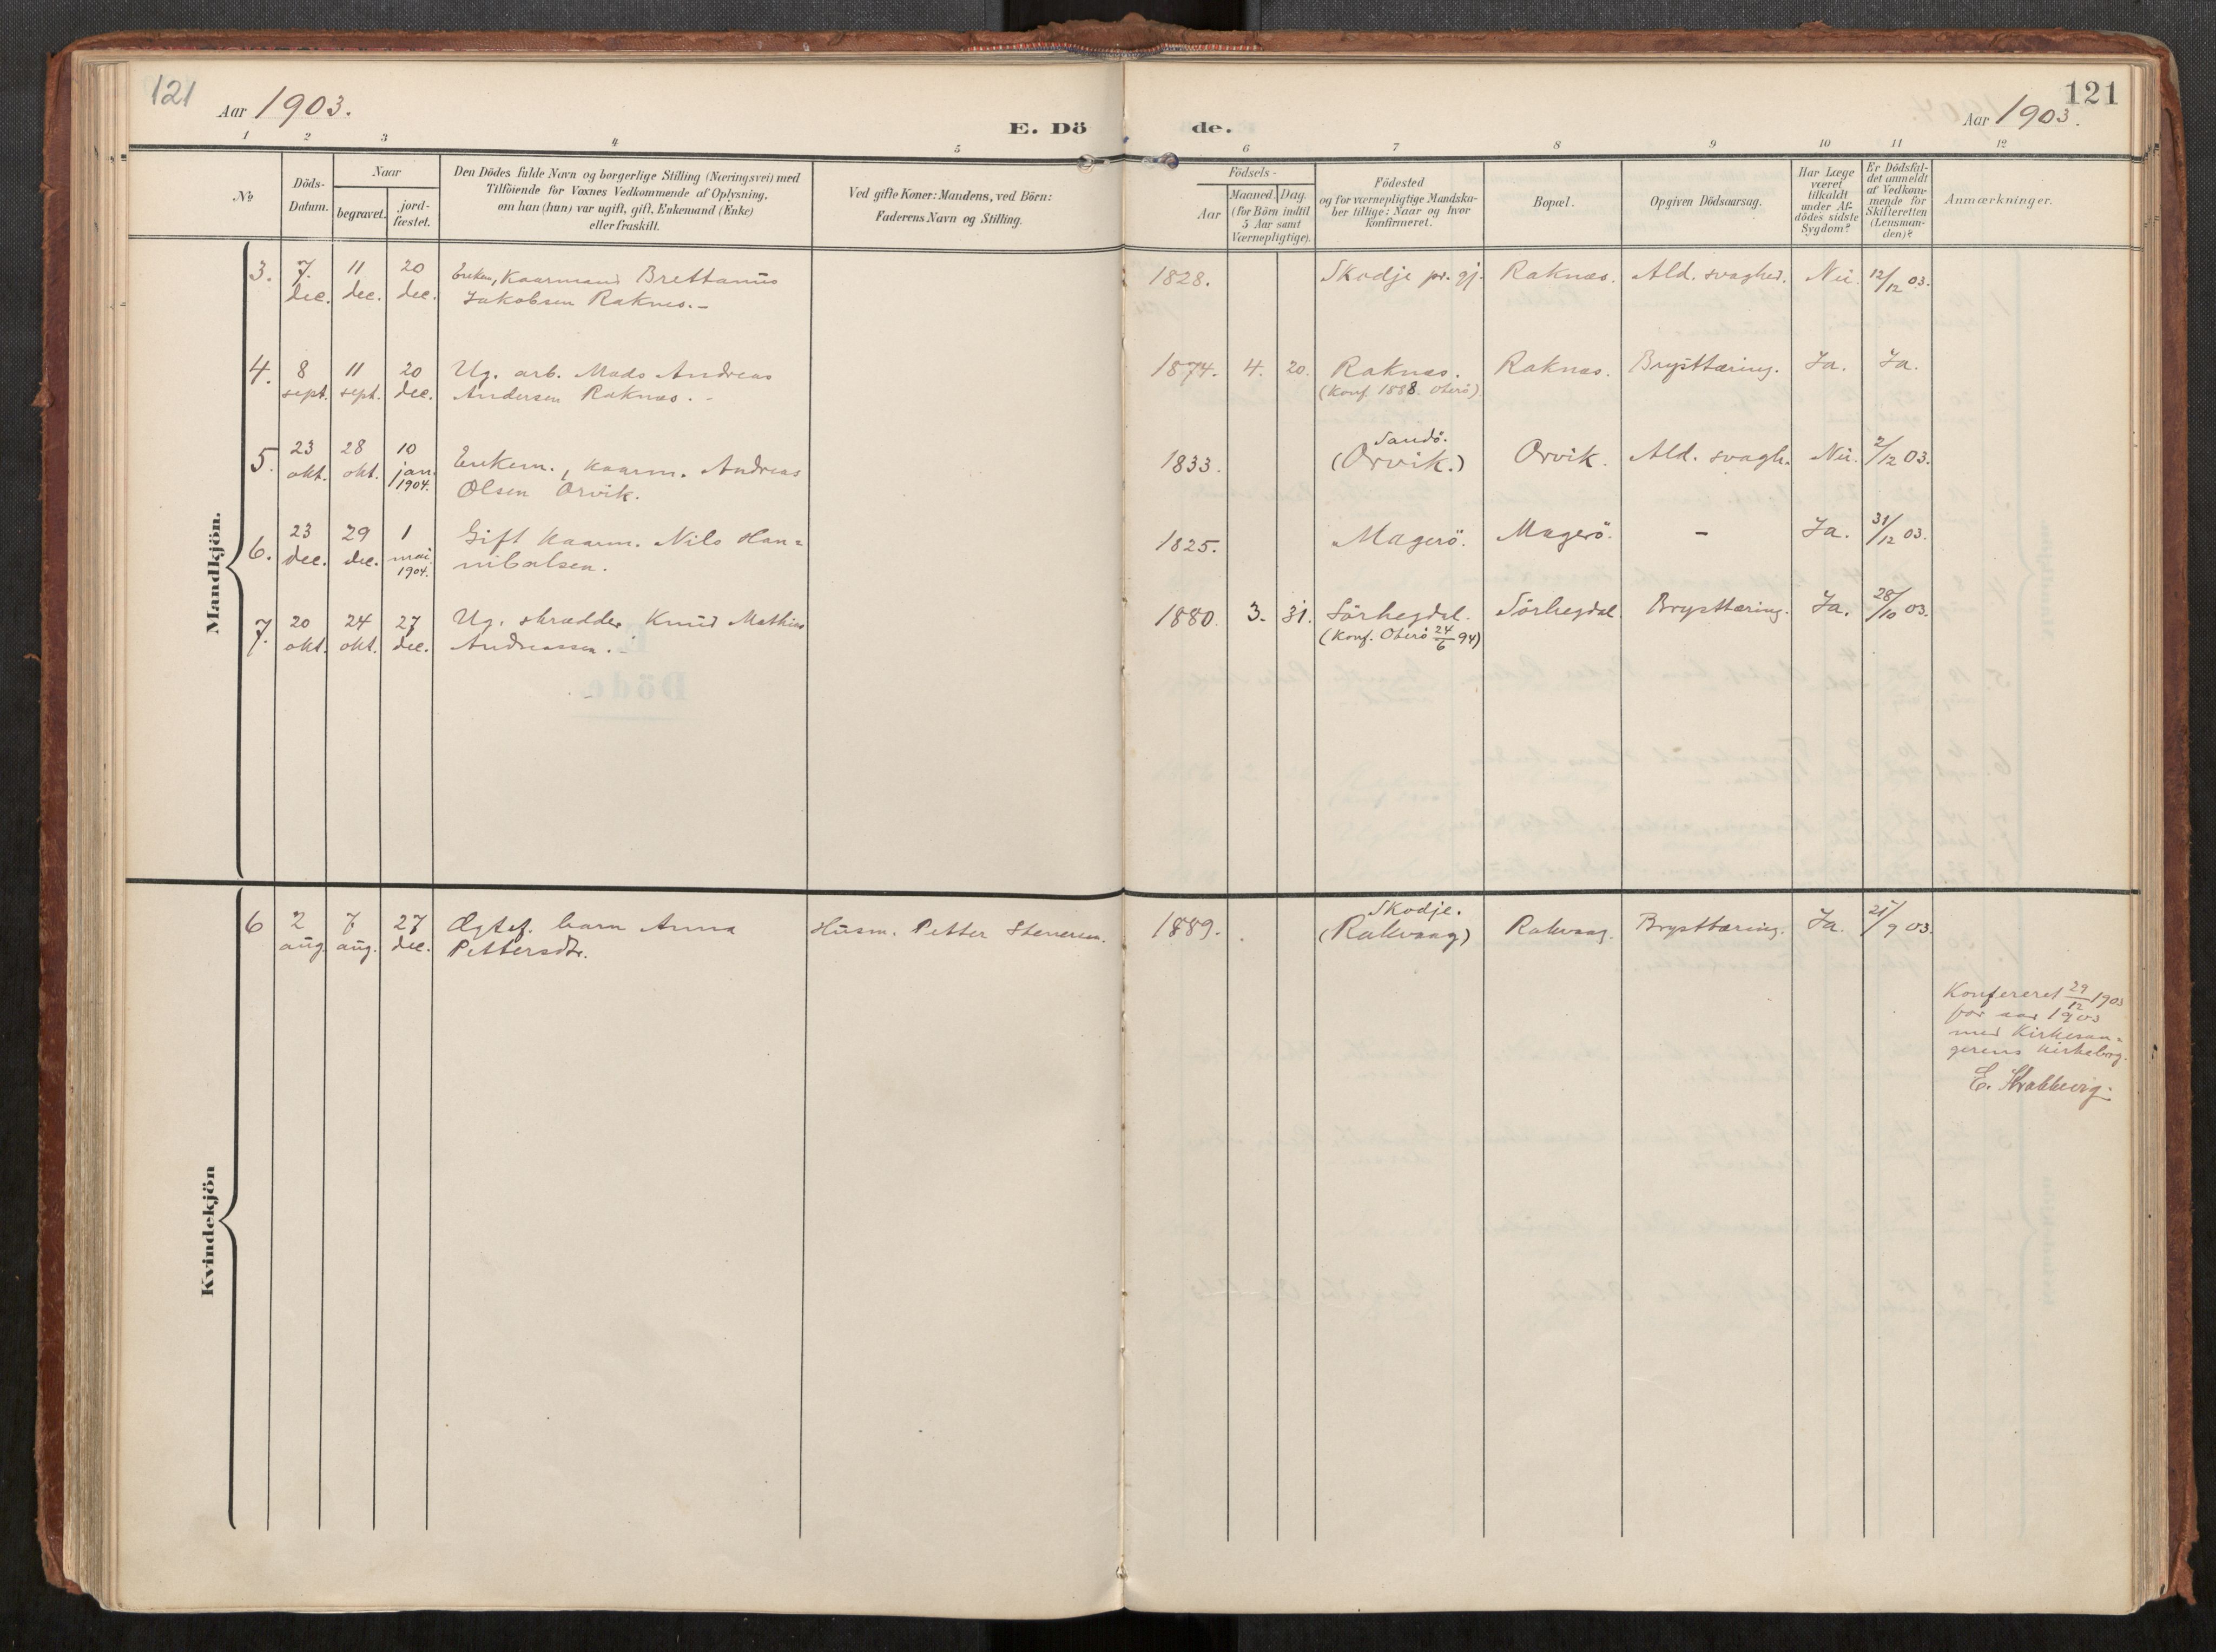 121
Aar 1903.
E. Dö
1 2 3 4 5
№
Döds-
Datum.
Naar
begravet.
jord-
fæstet.
Den Dödes fulde Navn og borgerlige Stilling (Næringsvei) med
Tilföiende for Voxnes Vedkommende af Oplysning,
om han (hun) var ugift, gift, Enkemand (Enke)
eller fraskilt.
Ved gifte Koner: Mandens, ved Börn:
Faderens Navn og Stilling.
Mandkjön.
3. 7. dec. 11 dec. 20 dec. Kaarmand Brettanus
Jakobsen Raknes.-
4. 8 sept. 11 sept. 20 dec. Ug. arb. Mads Andreas
Andersen Raknæs.-
5. 23 okt. 28 okt. 10 jan. 1904. Enkem., kaarm. Andreas
Olsen Orvik.
6. 23 dec. 29 dec. 1 mai 1904. Gift kaarm. Nils Han=
nibalsen.
7. 20 okt. 24 okt. 27 dec. Ug. skrædder Knud Mathias
Andreassen.-
Kvindekjön
6 2 aug. 7 aug. 27 dec. Ægtef. barn Anna
Pettersdtr.
Husm. Petter Stenersen.
121
Aar 1903.
de.
6 7 8 9 10 11 12
Födsels-
Aar
Maaned. Dag.
(for Börn indtil
5 Aar samt
Værnepligtige).
Födested
og for værnepligtige Mandska-
ber tillige: Naar og hvor
konfirmeret.
Bopæl.
Opgiven Dödsaarsag.
Har Læge
været
tilkaldt
under Af-
dödes sidste
Sygdom?
Er Dödsfal-
det anmeldt
af Vedkom-
mende for
Skifteretten
(Lensman-
den)?
Anmærkninger.
1828. Skodje pr. gj. Raknæs. Ald. svaghed. Nei. 12/12 03.
1874. 4. 20. Raknæs. Raknæs. Brysttæring. Ja. Ja.
(Konf 1888. Oterö)
Sandö.
1833. (Orvik.) Orvik. Ald. svagh. Nei. 2/12 03.
1825. Magerö. Magerö. - Ja. 31/12 03.
1880. 3. 31. Sörhegdal. Sörhegdal. Brysttæring. Ja. 28/10 03.
(Konf. Oterö 24/6 94)
Skodje.
1889. (Rakvaag) Rakvaag. Brysttæring. Ja. 21/9 03.
Konfereret 29/12 1903
for aar 1903
med Kirkesan=
gerens kirkebog.